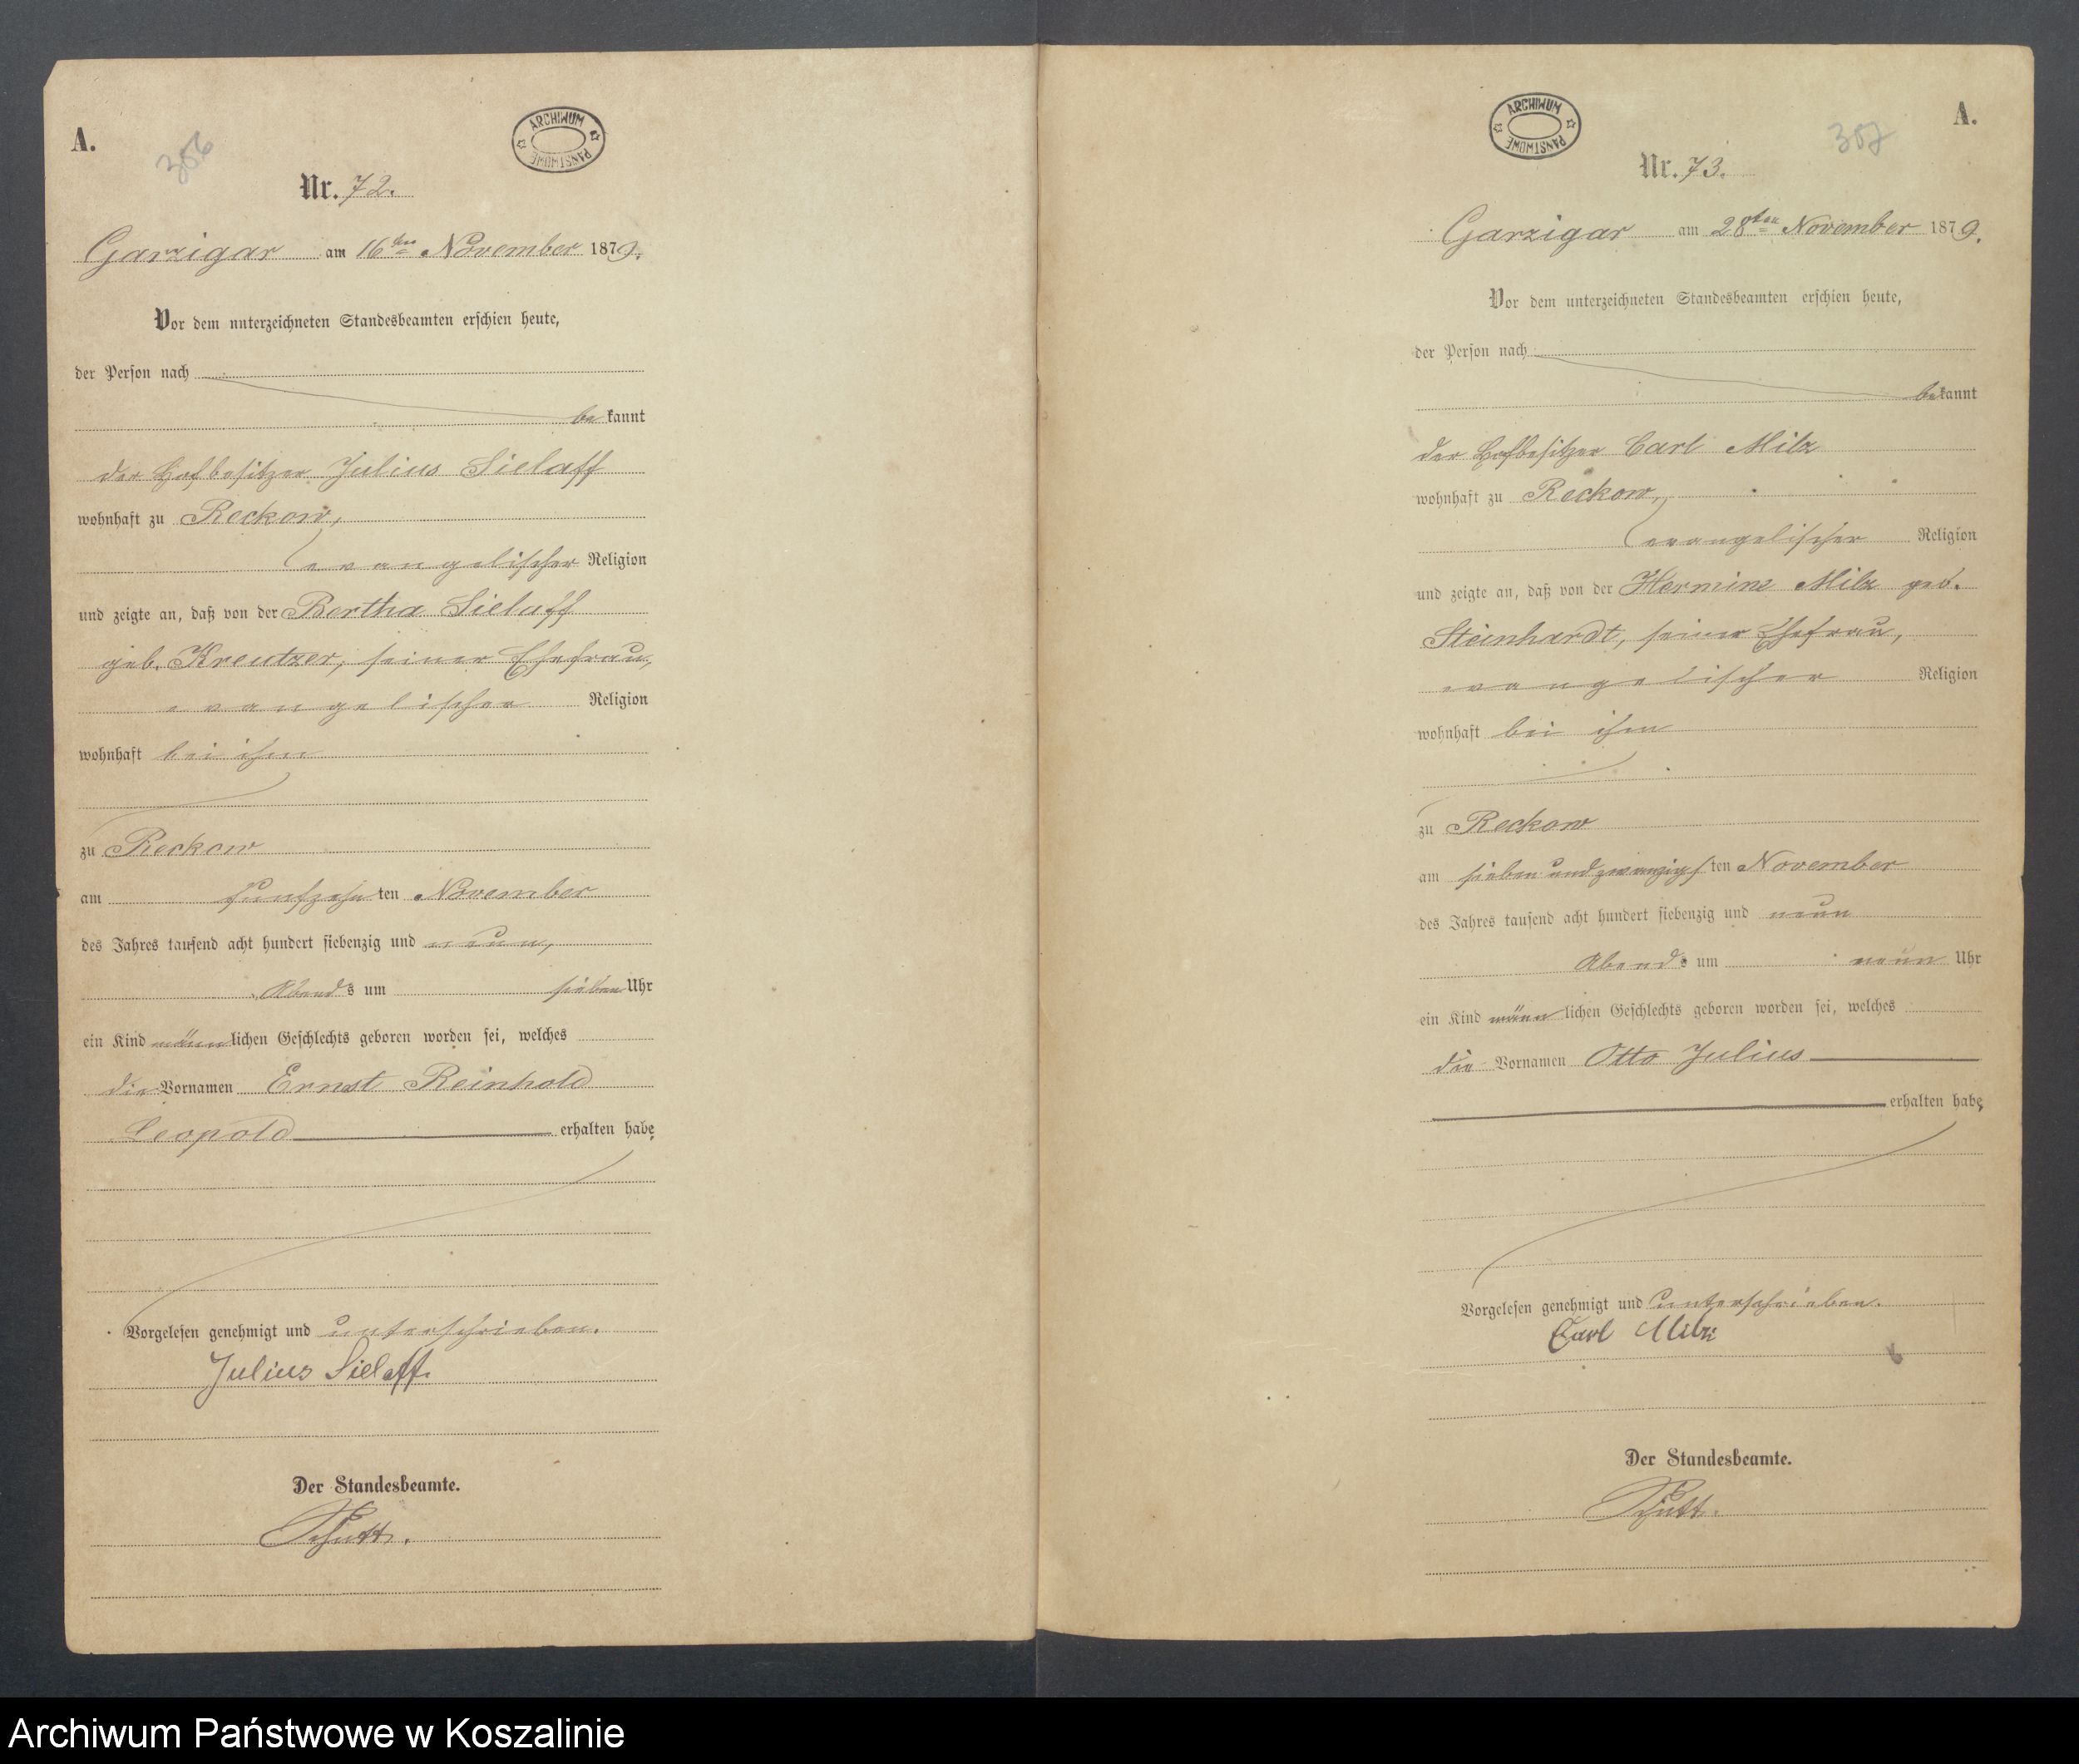 A.
306
ARCHIWUM PAŃSTWOWE
Nr. 72.
Garzigar am 16ten November 1879.
Vor dem unterzeichneten Standesbeamten erschien heute,
der Person nach
bekannt
der Hofbesitzer Julius Sielaff
wohnhaft zu Reckow,
evangelischer Religion
und zeigte an, daß von der Bertha Sielaff
geb. Kreutzer, seiner Ehefrau,
evangelischer Religion
wohnhaft bei ihm
zu Reckow
am funfzehnten November
des Jahres tausend acht hundert siebenzig und neun,
Abends um sieben Uhr
ein Kind männlichen Geschlechts geboren worden sei, welches
die Vornamen Ernst Reinhold
Leopold erhalten habe,
Vorgelesen genehmigt und unterschrieben.
Julius Sielaff.
Der Standesbeamte.
A.
307
ARCHIWUM PAŃSTWOWE
Nr. 73.
Garzigar am 28ten November 1879.
Vor dem unterzeichneten Standesbeamten erschien heute,
der Person nach
bekannt
der Hofbesitzer Carl Milz
wohnhaft zu Reckow,
evangelischer Religion
und zeigte an, daß von der Hermine Milz geb.
Steinhardt, seiner Ehefrau,
evangelischer Religion
wohnhaft bei ihm
zu Reckow
am sieben und zwanzigsten November
des Jahres tausend acht hundert siebenzig und neun
Abends um neun Uhr
ein Kind männlichen Geschlechts geboren worden sei, welches
die Vornamen Otto Julius
erhalten habe,
Vorgelesen genehmigt und unterschrieben.
Carl Milz
Der Standesbeamte.
Archiwum Państwowe w Koszalinie